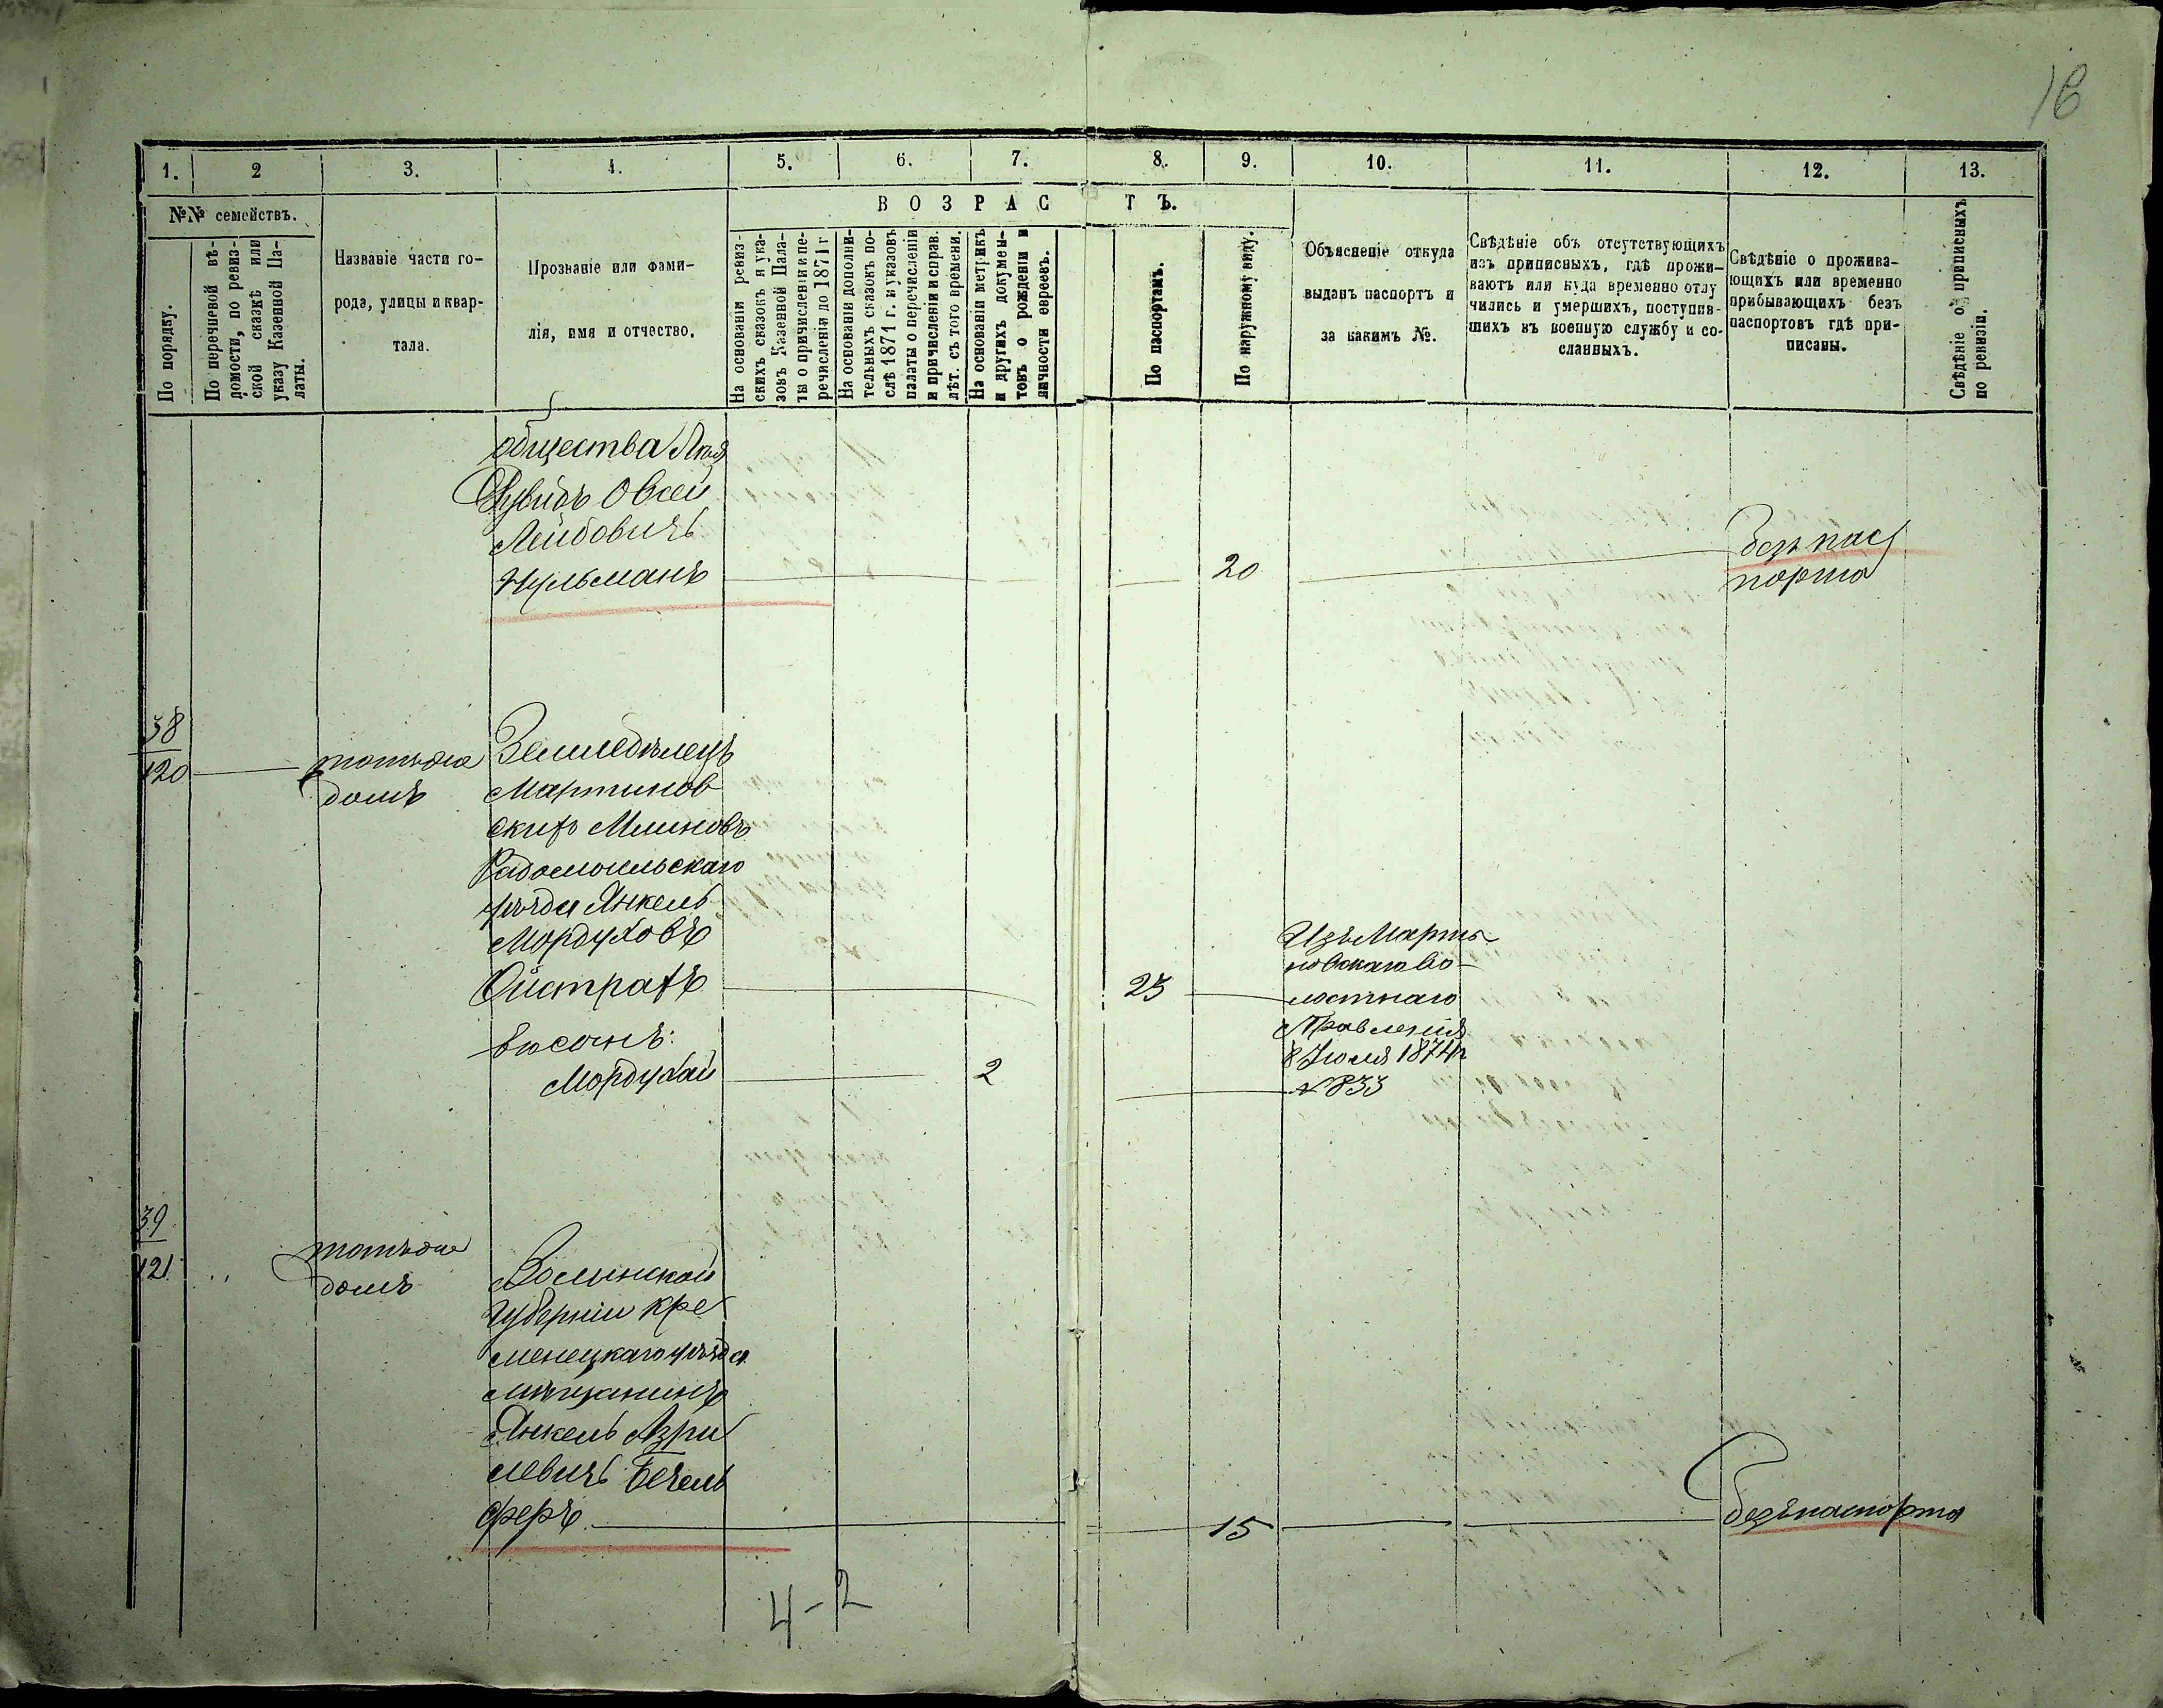 16
1. 2 3. 4. 5. 6. 7. 8. 9. 10. 11. 12. 13.
№№ семействъ.
ВОЗРАСТЪ.
По порядку.
По перечневой вѣ-
домости, по ревиз-
ской сказкѣ или
указу Казенной Па-
латы.
Названіе части го-
рода, улицы и квар-
тала.
Прозваніе или фами-
лія, имя и отчество.
На основаніи ревиз-
скихъ сказокъ и ука-
зовъ Казенной Пала-
ты о причисленіи и пе-
речисленіи до 1871 г
На основаніи дополни-
тельныхъ сказокъ по-
слѣ 1871 г. и указовъ
палаты о перечисленіи
и причисленіи и справ.
лѣт. съ того времени.
На основаніи метрикъ
и другихъ докумен-
товъ о рожденіи и
личности евреевъ.
По паспортамъ.
По наружному виду.
Объясненіе откуда
выданъ паспортъ и
за какимъ №.
Свѣдѣніе объ отсутствующихъ
изъ приписныхъ, гдѣ прожи-
ваютъ или куда временно отлу
чились и умершихъ, поступив-
шихъ въ военную службу и со-
сланныхъ.
Свѣдѣніе о прожива-
ющихъ или временно
прибывающихъ безъ
паспортовъ гдѣ при-
писаны.
Свѣдѣніе объ приписныхъ
по ревизіи.
общества
Овсей
Лейбовичъ
Нульманъ 20
безъ пас
порта
38
120
тотъ же
домъ
Земледѣлецъ
Мартинов
скихъ Млиновъ
Радомысльскаго
уѣзда Янкель
Мордуховъ
Ойстрахъ 23
Изъ Марты
новскаго Во-
лостнаго
Правленія
8 Іюля 1874 г
№ 833
Его сынъ:
Мордухай 2
39
121
тотъ же
домъ
Волынской
Губерніи Кре
менецкаго уѣзда
мѣщанинъ
Янкель Азри
левичъ Бечель
феръ 15
безъ паспорта
4-2